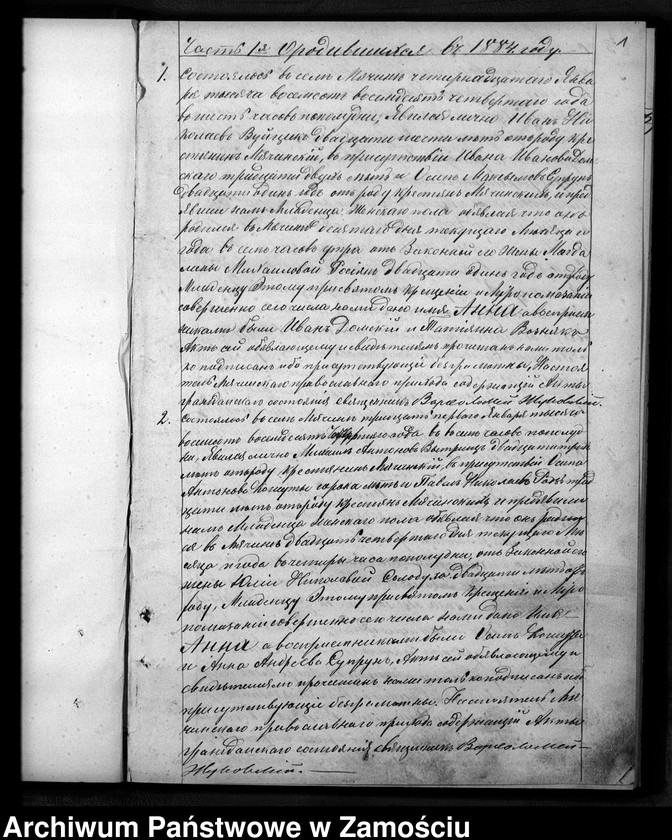 Часть 1я О родившихся въ 1884 году
1
1. Состоялось въ селѣ Мячинѣ четырнадцатаго Янва
ря тысяча восемсотъ восемдесятъ четвертаго года
въ шесть часовъ пополудни, Явился лично Иванъ Ни
колаевъ Вуйцикъ двадцати шести лѣтъ отъ роду кре
стьянинъ Мячинскій, въ присутствіи Ивана Иванова Дом
скаго тридцати двухъ лѣтъ и Осипа Супрун
двадцати одинъ годъ отъ роду крестьянъ Мячинскихъ, и пред
явилъ намъ Младенца Женскаго пола объявляя что оно
родилось въ Мячинѣ десятаго дня текущаго Мѣсяца и
года въ семь часовъ утра отъ Законной его Жены Магда
лины Михаиловой двадцати одинъ годъ отъ роду
Младенцу Этому при святомъ крещеніи и Муропомазаніи
совершенно сего числа нами дано имя Анна а воспріем
никами были Иванъ Домскій и Татіянна Возьнякъ
Актъ сей объявляющему и свидѣтелямъ прочитанъ нами толь
ко подписанъ ибо присутствующіе безграмотны, Настоя
тель Мячинскаго православнаго прихода содержащій Акты
гражданскаго состоянія священникъ Варѳоломей Жуковскій.
2. Состоялось въ селѣ Мячинѣ тридцать перваго Января тысяча
восемсотъ восемдесятъ четвертаго года въ часовъ пополуд
ни, Явился лично Михаилъ Антоновъ двадцати трехъ
лѣтъ отъ роду крестьянинъ Мячинскій, въ присутствіи Осипа
Антонова Кошуты сорока лѣтъ и Павла Николаева трид
цати лѣтъ отъ роду крестьянъ Мячинскихъ и предъявилъ
намъ Младенца Женскаго пола объявляя что онъ родил
ся въ Мячинѣ двадцать четвертаго дня текущаго Мѣ
сяца и года въ четыре часа пополудни, отъ Законной его
жены Юліи Николаевой Солодуха двадцати лѣтъ отъ
роду, Младенцу Этому при святомъ Крещеніи и Муро
помазаніи совершенно сего числа нами дано Имя
Анна а воспріемниками были Осипъ Кошута
и Анна Андреева Супрунъ, Актъ сей объявляющему и
свидѣтелямъ прочитанъ нами только подписанъ ибо
присутствующіе безграмотны. Настоятель Мя
чинскаго православнаго прихода содержащій Акты
гражданскаго состоянія священникъ Варѳоломей
Жуковскій.
Archiwum Państwowe w Zamościu